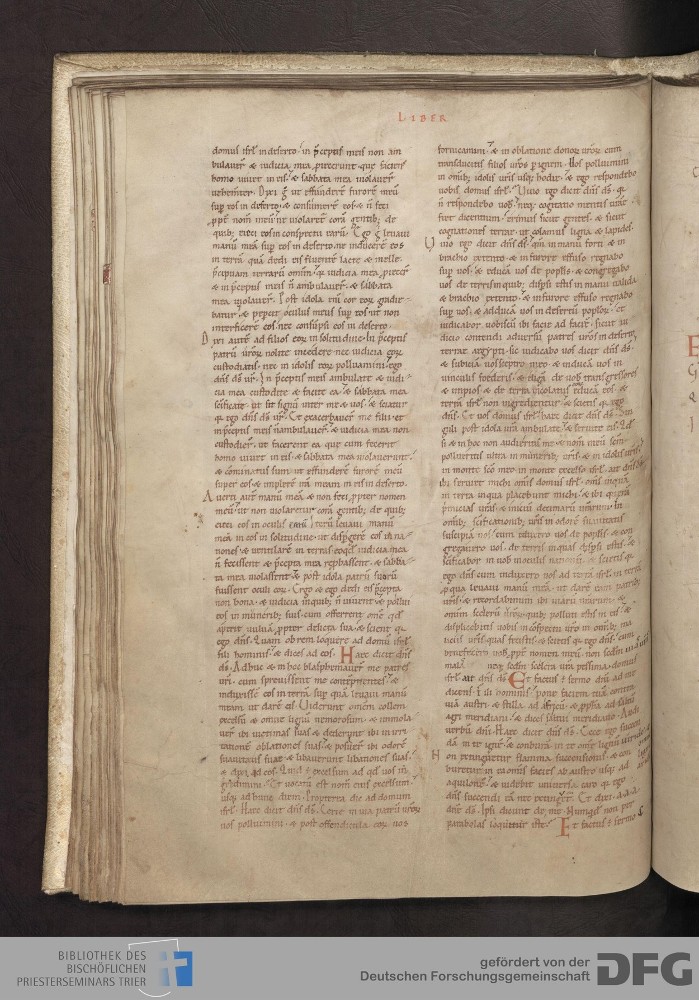 LIBER
domus isrl in deserto. in p̄ceptis meis non am
bulauer̄. & iudicia mea proiecerunt. que faciens
homo uiuet in eis. & sabbata mea uiolauer̄
uehementer. Dixi g̃ ut effunderē furorē meū
sup eos in deserto. & consumerē eos. & feci
ppt̄ nom̄ meū ne uiolaret̄ corā gentib; de
quib; eieci eos in conspectu earū. Ego g̃ leuaui
manū meā sup eos in deserto. ne inducerē eos
in terrā quā dedi eis fluentē lacte & melle.
p̄cipuam terrarū omniū. q̄ iudicia mea proiecer̄
& in p̄ceptis meis n̄ ambulauer̄. & sabbata
mea uiolauer̄. Post idola eni cor eor̄ gradie
batur. & pepercit oculus meus sup eos ut non
interficerē eos. nec consūpsi eos in deserto.
Dixi autē ad filios eor̄ in solitudine. In p̄ceptis
patrū uror̄ nolite incedere. nec iudicia eor̄
custodiatis. nec in idolis eor̄ polluamini. ego
dn̄s ds̄ ur̄. In p̄ceptis meis ambulate. & iudi
cia mea custodite & facite ea. & sabbata mea
sc̄ificate. ut sit signū inter me & uos. & sciatur
q̄ ego dn̄s ds̄ ur̄. Et exacerbauer̄ me filii. et
in p̄ceptis meis n̄ ambulauer̄. & iudicia mea non
custodier̄. ut facerent ea que cum fecerit
homo uiuet in eis. & sabbata mea uiolauerunt.
& cōminatus sum ut effunderē furorē meū
super eos. & implerē irā meam in eis in deserto.
Auerti autē manū meā. & non feci. propter nomen
meū. ut non uiolaretur corā gentib; de quib;
eieci eos in oculis earū. Iterū leuaui manū
meā in eos in solitudine. ut disp̄gerē eos in na
tiones. & uentilarē in terras. eo q̄d iudicia mea
n̄ fecissent. & p̄cepta mea rep̄bassent. & sabba
ta mea uiolassent. & post idola patrū suorū
fuissent oculi eor̄. Ergo & ego dedi eis p̄cepta
non bona. & iudicia in quib; n̄ uiuent. & pollui
eos in munerib; suis. cum offerrent omne q̄d
aperit uuluā. propter delicta sua. & scient q̄
ego dn̄s. Quam ob rem loquere ad domū isrl
fili hominis. & dices ad eos. Haec dicit dn̄s
ds̄. Adhuc & in hoc blasphemauer̄ me patres
uri. cum spreuissent me contempnentes. &
induxissē eos in terrā sup quā leuaui manū
meam ut darē eis. Uiderunt omnem collem
excelsū & omne lignū nemorosum. & immola
uer̄ ibi uictimas suas. & dederunt ibi in irri
tationē oblationes suas. & posuer̄ ibi odorē
suauitatis suae. & libauerunt libationes suas.
& dixi ad eos. Quid ē excelsum ad q̄d uos in
gredimini. Et uocatū est nom̄ eius excelsum
usq; ad hunc diem. Propterea dic ad domum
isrl. Haec dicit dn̄s ds̄. Certe in uia patrū uror̄
uos polluimini. & post offendicula eor̄ uos
fornicamini. & in oblatione donor̄ uror̄ cum
transducitis filios uros p ignem. Uos polluimini
in omib; idolis uris usq; hodie. & ego respondebo
uobis domus isrl. Uiuo ego dicit dn̄s ds̄. q̄
n̄ respondebo uob̄. neq; cogitatio mentis urae
fiet dicentium. erimus sicut gentes. & sicut
cognationes terrae. ut colamus ligna & lapides.
Uiuo ego dicit dn̄s ds̄. qm̄ in manu forti & in
brachio extento. & in furore effuso regnabo
sup uos. & educā uos de poplis. & congregabo
uos de terris in quib; dispsi estis in manu ualida
& brachio extento. & in furore effuso regnabo
sup uos. & adducā uos in desertū poplor̄. et
iudicabor uobiscū ibi facie ad faciē. sicut iu
dicio contendi aduersū patres uros in deserto
terrae aegypti. sic iudicabo uos dicit dn̄s ds̄.
& subiciā uos sceptro meo. & inducā uos in
uinculis foederis. & eligā de uob̄ transgressores
& impios. & de terra incolatus educā eos. &
terrā isrl non ingredientur. & scietis q̄ ego
dn̄s. Et uos domus isrl. haec dicit dn̄s ds̄. Sin
guli post idola ura ambulate. & seruite eis. Qd̄
si & in hoc non audieritis me. & nom̄ meū scm̄
pollueritis ultra in munerib; uris. & in idolis uris.
in monte sc̄o meo in monte excelso isrl. ait dn̄s ds̄.
ibi seruiet michi omnis domus isrl. omnis inquā
in terra in qua placebunt michi. & ibi querā
primicias uras. & iniciū decimarū urarum. in
omib; sc̄ificationib; uris in odorē suauitatis
suscipiā uos. cum eduxero uos de poplis. & con
gregauero uos de terris in quas dispsi estis. &
sc̄ificabor in uob̄ in oculis nationū. & scietis q̄
ego dn̄s cum induxero uos ad terrā isrl. in terrā
p qua leuaui manū meā. ut darē eam patrib;
uris. & recordabimini ibi uiarū urarum. &
omiū scelerū uror̄. quib; polluti estis in eis. &
displicebitis uobis in conspectu uro in omib; ma
liciis uris quas fecistis. & scietis q̄ ego dn̄s. cum
benefecero uob̄ ppt̄ nomen meū. non sedm̄ uias uras
malas neq; sedm̄ scelera ura pessima. domus
isrl. ait dn̄s ds̄. Et factus ē sermo dn̄i ad me
dicens. Fili hominis. pone faciem tuā contra
uiā austri. & stilla ad africū. & ppħa ad saltū
agri meridiani. & dices saltui meridiano. Audi
uerbū dn̄i. Haec dicit dn̄s ds̄. Ecce ego succen
dā in te ignē. & conburā in te omne lignū uiride. &
Non extinguetur flamma succensionis. & con
buretur in ea omnis facies ab austro usq; ad
aquilonē. & uidebit uniuersa caro q̄ ego
dn̄s succendi eā. nec extinguet̄. Et dixi. a.a.a.
dn̄e ds̄. Ipsi dicunt de me. Numquid non per
parabolas loquitur iste. Et factus ē sermo
BIBLIOTHEK DES
BISCHÖFLICHEN
PRIESTERSEMINARS TRIER
gefördert von der
Deutschen Forschungsgemeinschaft DFG